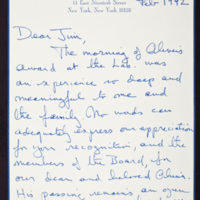 11 East Nineteenth Street
New York, New York 10128
Feb 1992
Dear Jim,
The morning of
award at the was
an experience so deep and
meaningful to me and
the family. No words can
adequately express our appreciation
for your recognition, and the
members of the Board, for
our dear and beloved
His passing remains an open